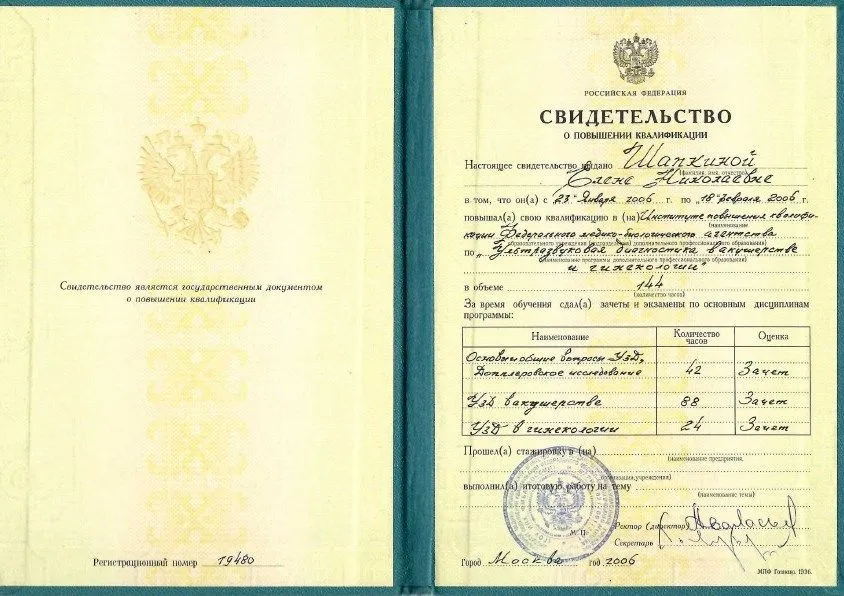 Свидетельство является государственным документом
о повышении квалификации
Регистрационный номер 19480
РОССИЙСКАЯ ФЕДЕРАЦИЯ
СВИДЕТЕЛЬСТВО
О ПОВЫШЕНИИ КВАЛИФИКАЦИИ
Настоящее свидетельство выдано Шапкиной
(фамилия, имя, отчество)
Елене Николаевне
в том, что он(а) с „23" января 2006 г. по „18" февраля 2006 г.
повышал(а) свою квалификацию в (на) Институте повышения квалифи-
(наименование
кации Федерального медико-биологического агентства
образовательного учреждения (подразделения) дополнительного профессионального образования)
по „Ультразвуковая диагностика в акушерстве
(наименование программы дополнительного профессионального образования)
и гинекологии"
в объеме 144
(количество часов)
За время обучения сдал(а) зачеты и экзамены по основным дисциплинам
программы:
Наименование Количество часов Оценка
Основы общие вопросы УЗД,
Допплеровское исследование 42 Зачет
УЗД в акушерстве 88 Зачет
УЗД в гинекологии 24 Зачет
Прошел(а) стажировку в (на)
(наименование предприятия,
организации, учреждения)
выполнил(а) итоговую работу на тему
(наименование темы)
М. П.
Ректор (директор)
Секретарь
Город Москва год 2006
МПФ Гознака. 1996.